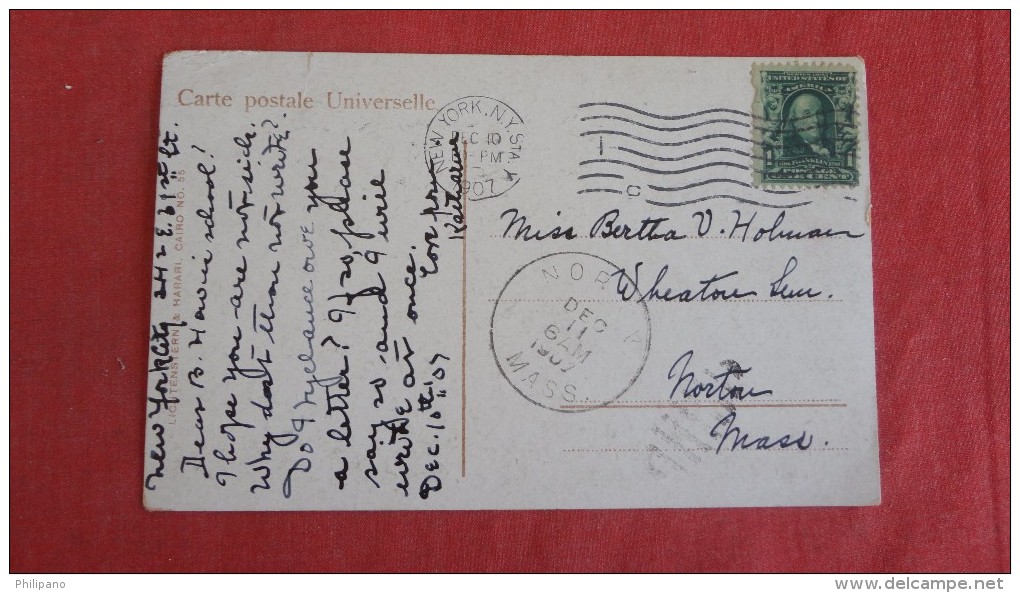 Carte postale Universelle
LICHTENSTERN & HARARI, CAIRO NO. 55
NEW YORK, N.Y. STA. A
DEC 10
PM
1907
C
UNITED STATES OF
AMERICA
FRANKLIN
1 1
POSTAGE
ONE CENT
New York City 242 E. 61st St.
Dear B. How is school?
I hope you are not sick.
Why dost thou not write?
Do I owe you
a letter? If so, please
say so and I will
write at once.
Dec. 10th '07
Katharine
Miss Bertha V. Holman
Wheaton Sem.
Norton
Mass.
NOR
DEC
11
6 AM
1907
MASS.
Philipano
www.delcampe.net